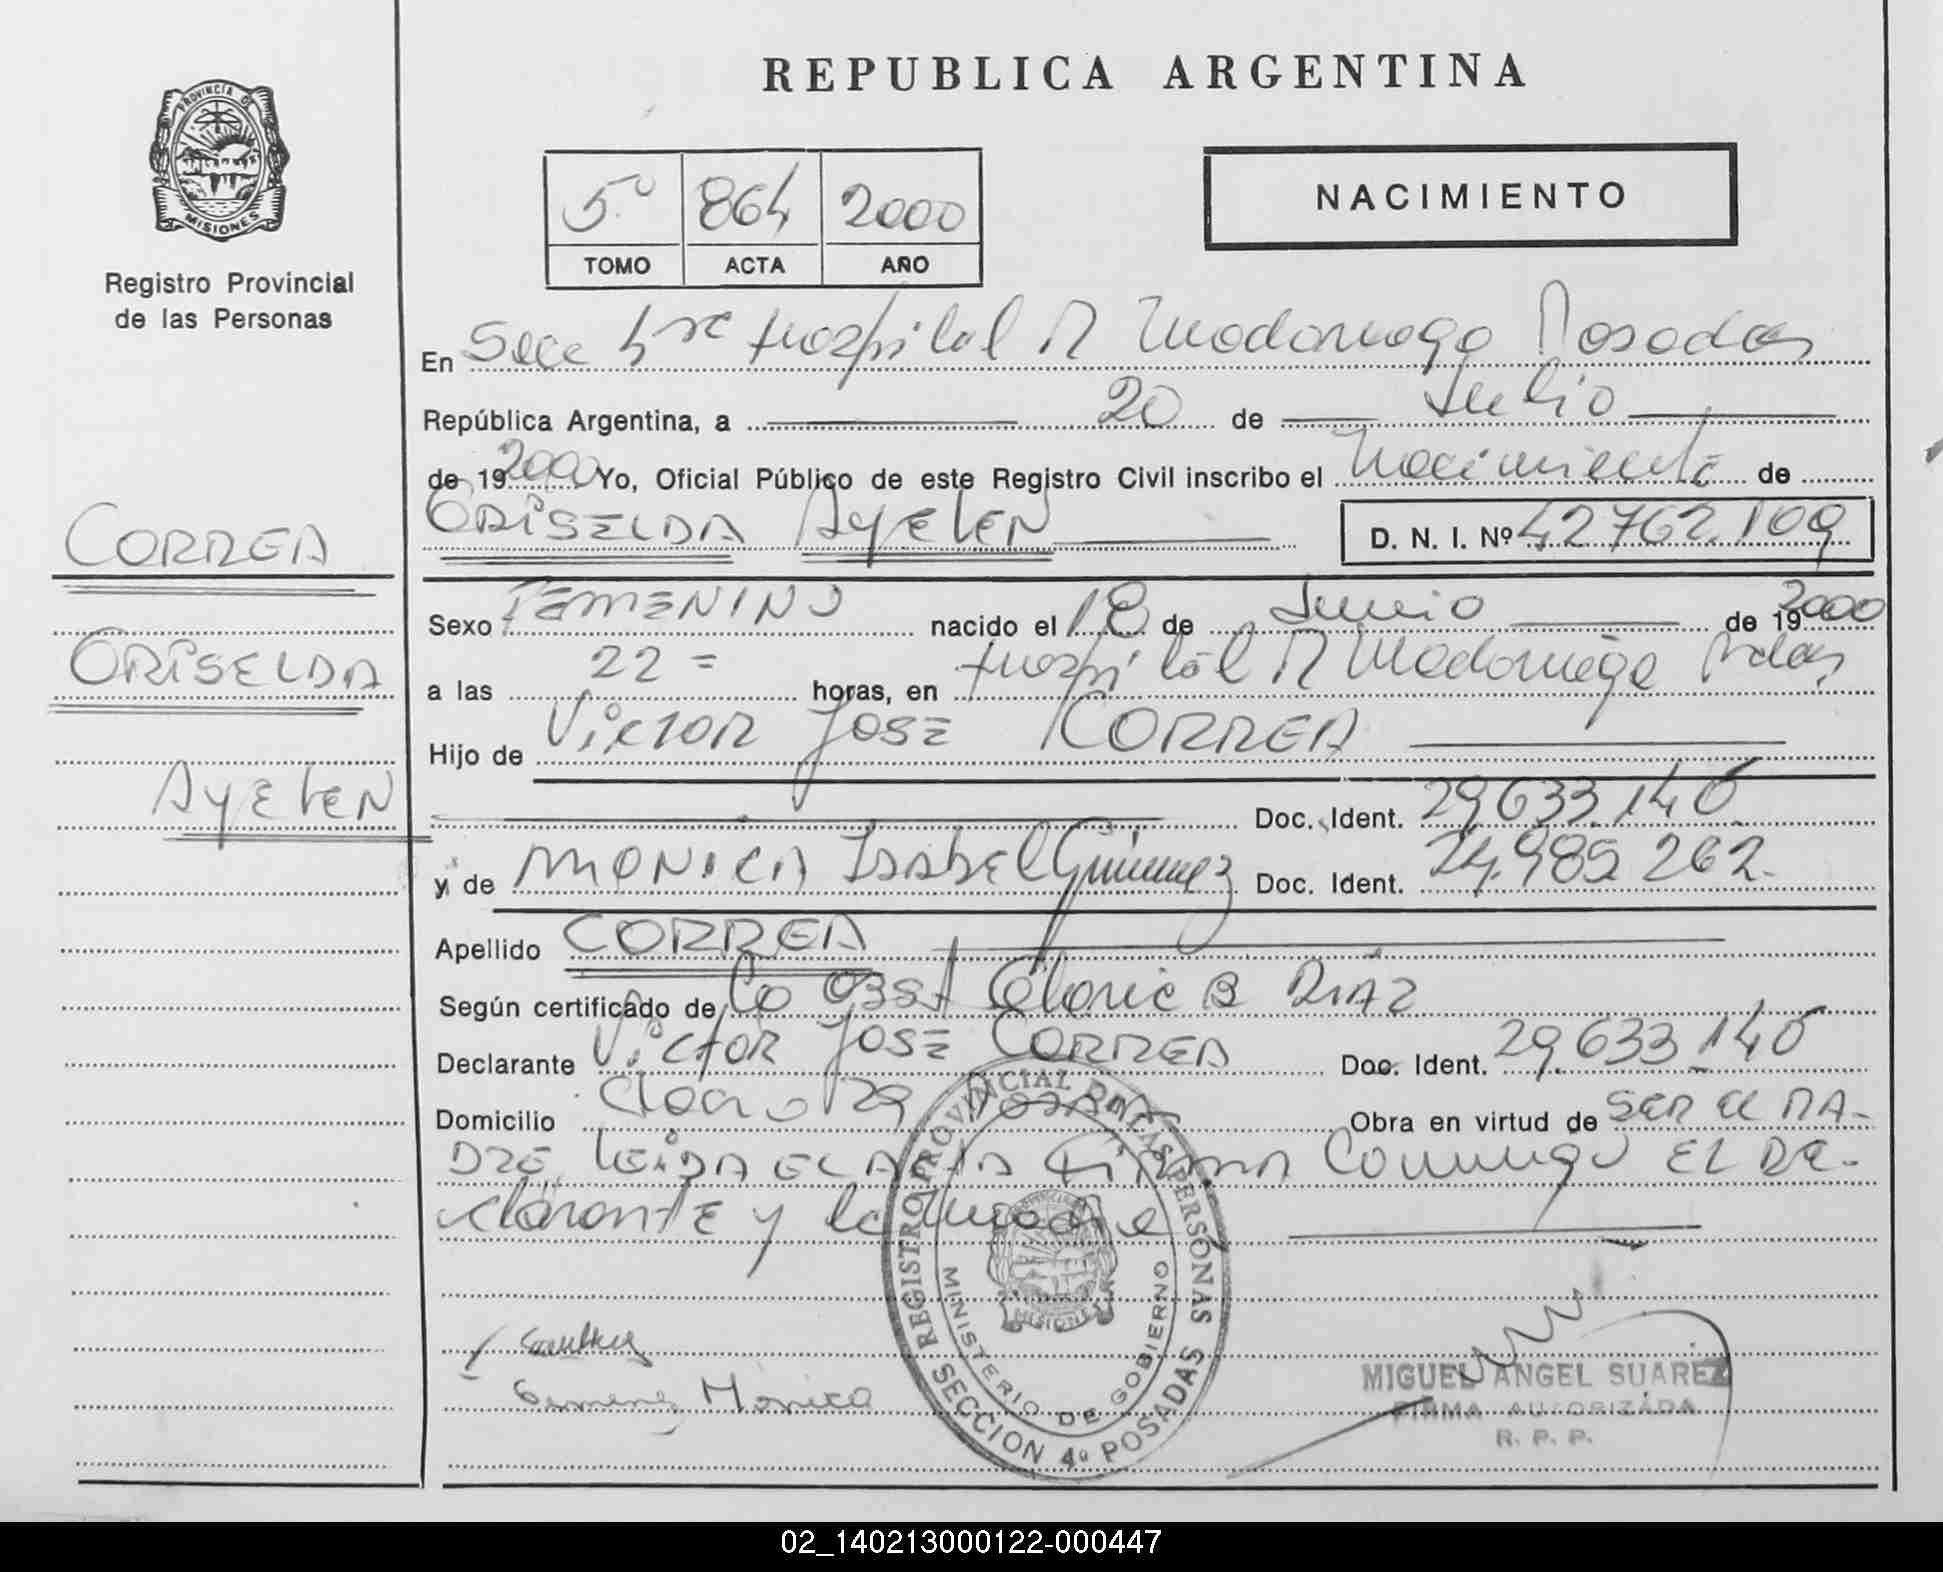 REPUBLICA ARGENTINA
PROVINCIA DE
MISIONES
Registro Provincial
de las Personas
5º 864 2000
TOMO ACTA AÑO
NACIMIENTO
En Secc Hospital R Madariaga Posadas
República Argentina, a 20 de Julio
de 19 2000 Yo, Oficial Público de este Registro Civil inscribo el Nacimiento de
GRISELDA AYELEN D. N. I. Nº 42762.109
CORREA
GRISELDA
AYELEN
Sexo FEMENINO nacido el 18 de Junio de 19 2000
a las 22 = horas, en Hospital R Madariaga Pdas
Hijo de Victor Jose CORREA
Doc. Ident. 29.633.140
y de MONICA ISABEL Gimenez Doc. Ident. 24.985 262.
Apellido CORREA
Según certificado de Obst Gloria B DIAZ
Declarante Victor Jose CORREA Doc. Ident. 29.633.140
Domicilio 129 Obra en virtud de SER EL PA-
DRE LEIDA EL ACTA FIRMAN Conmigo EL DE-
clarante y la madre
REGISTRO PROVINCIAL DE LAS PERSONAS
MINISTERIO DE GOBIERNO
MISIONES
SECCION 4º POSADAS
Gimenez Monica
MIGUEL ANGEL SUAREZ
FIRMA AUTORIZADA
R. P. P.
02_140213000122-000447